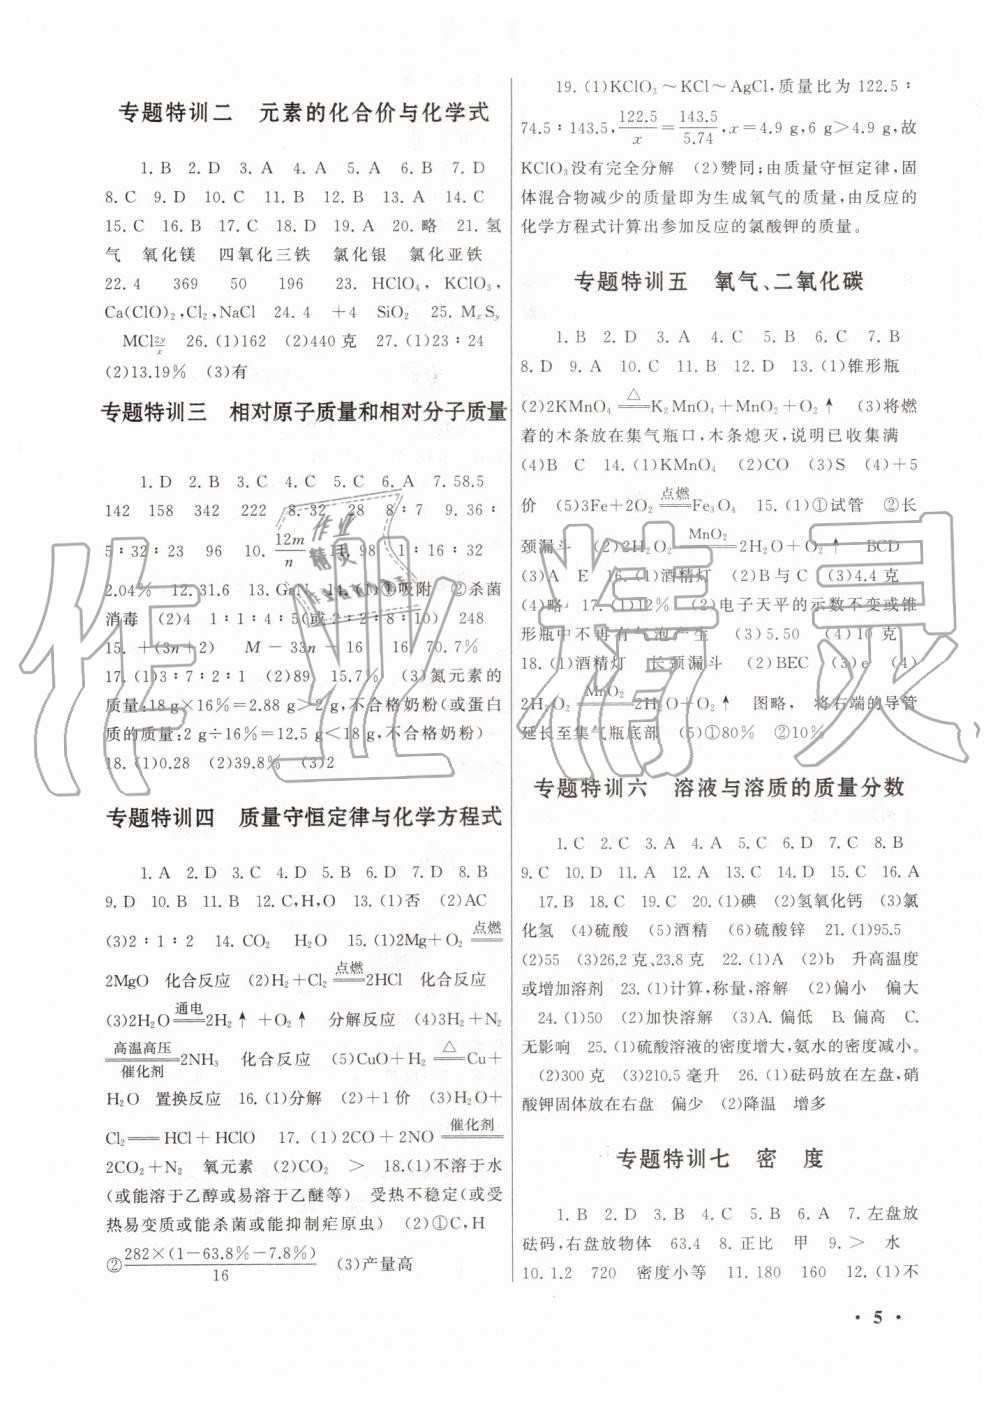 专题特训二　元素的化合价与化学式
1. B　2. D　3. A　4. A　5. A　6. B　7. D
8. C　9. D　10. C　11. B　12. B　13. A　14. C
15. C　16. B　17. C　18. D　19. A　20. 略　21. 氢
气　氧化镁　四氧化三铁　氯化银　氯化亚铁
22. 4　369　50　196　23. HClO₄，KClO₃，
Ca(ClO)₂，Cl₂，NaCl　24. 4　+4　SiO₂　25. MₓSᵧ
MCl2y/x　26. (1)162　(2)440 克　27. (1)23∶24
(2)13.19%　(3)有
专题特训三　相对原子质量和相对分子质量
1. D　2. B　3. C　4. C　5. C　6. A　7. 58.5
142　158　342　222　8. 32　28　8∶7　9. 36∶
5∶32∶23　96　10. 12m/n　11. 98　1∶16∶32
2.04%　12. 31.6　13. GaN　14. (1)①吸附　②杀菌
消毒　(2)4　1∶1∶4∶5(或2∶2∶8∶10)　248
15. +(3n+2)　M－33n－16　16. 70.7%
17. (1)3∶7∶2∶1　(2)89　15.7%　(3)氮元素的
质量:18 g×16%=2.88 g>2 g,不合格奶粉(或蛋白
质的质量:2 g÷16%=12.5 g<18 g,不合格奶粉)
18. (1)0.28　(2)39.8%　(3)2
专题特训四　质量守恒定律与化学方程式
1. A　2. D　3. C　4. D　5. B　6. D　7. D　8. B
9. D　10. B　11. B　12. C,H,O　13. (1)否　(2)AC
(3)2∶1∶2　14. CO₂　H₂O　15. (1)2Mg+O₂ 点燃══
2MgO　化合反应　(2)H₂+Cl₂ 点燃══ 2HCl　化合反应
(3)2H₂O 通电══ 2H₂↑+O₂↑　分解反应　(4)3H₂+N₂
高温高压══催化剂 2NH₃　化合反应　(5)CuO+H₂ △══ Cu+
H₂O　置换反应　16. (1)分解　(2)+1价　(3)H₂O+
Cl₂══HCl+HClO　17. (1)2CO+2NO 催化剂══
2CO₂+N₂　氧元素　(2)CO₂　>　18. (1)不溶于水
(或能溶于乙醇或易溶于乙醚等)　受热不稳定(或受
热易变质或能杀菌或能抑制疟原虫)　(2)①C,H
②282×(1－63.8%－7.8%)/16　(3)产量高
19. (1)KClO₃～KCl～AgCl,质量比为122.5∶
74.5∶143.5,122.5/x=143.5/5.74,x=4.9 g,6 g>4.9 g,故
KClO₃没有完全分解　(2)赞同;由质量守恒定律,固
体混合物减少的质量即为生成氧气的质量,由反应的
化学方程式计算出参加反应的氯酸钾的质量。
专题特训五　氧气、二氧化碳
1. B　2. D　3. A　4. C　5. B　6. C　7. B
8. D　9. A　10. C　11. B　12. D　13. (1)锥形瓶
(2)2KMnO₄ △══ K₂MnO₄+MnO₂+O₂↑　(3)将燃
着的木条放在集气瓶口,木条熄灭,说明已收集满
(4)B　C　14. (1)KMnO₄　(2)CO　(3)S　(4)+5
价　(5)3Fe+2O₂ 点燃══ Fe₃O₄　15. (1)①试管　②长
颈漏斗　(2)2H₂O₂ MnO₂══ 2H₂O+O₂↑　BCD
(3)A　E　16. (1)酒精灯　(2)B与C　(3)4.4克
(4)略　17. (1)12%　(2)电子天平的示数不变或锥
形瓶中不再有气泡产生　(3)5.50　(4)10克
18. (1)酒精灯　长颈漏斗　(2)BEC　(3)e　(4)
2H₂O₂ MnO₂══ 2H₂O+O₂↑　图略，　将右端的导管
延长至集气瓶底部　(5)①80%　②10%
专题特训六　溶液与溶质的质量分数
1. C　2. C　3. A　4. A　5. C　6. D　7. C　8. B
9. C　10. D　11. A　12. A　13. C　14. D　15. C　16. A
17. B　18. C　19. C　20. (1)碘　(2)氢氧化钙　(3)氯
化氢　(4)硫酸　(5)酒精　(6)硫酸锌　21. (1)95.5
(2)55　(3)26.2克、23.8克　22. (1)A　(2)b　升高温度
或增加溶剂　23. (1)计算,称量,溶解　(2)偏小　偏大
24. (1)50　(2)加快溶解　(3)A. 偏低　B. 偏高　C.
无影响　25. (1)硫酸溶液的密度增大,氨水的密度减小。
(2)300克　(3)210.5毫升　26. (1)砝码放在左盘,硝
酸钾固体放在右盘　偏少　(2)降温　增多
专题特训七　密　度
1. B　2. D　3. B　4. C　5. B　6. A　7. 左盘放
砝码,右盘放物体　63.4　8. 正比　甲　9. >　水
10. 1.2　720　密度小等　11. 180　160　12. (1)不
·5·
作业精灵
作业
精灵